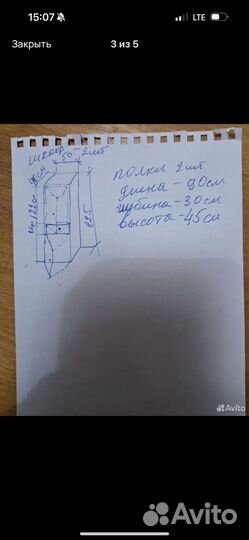 15:07
LTE
Закрыть
3 из 5
шкаф - 2шт
50
225
полки 2 шт
длина - 90см
глубина - 30см
высота - 45см
Avito
Avito